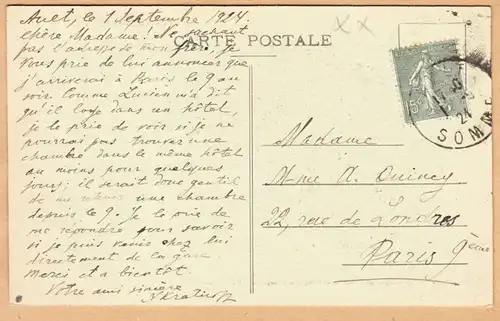 Ault, le 1 Septembre 1924
chère Madame! Ne sachant
pas l'adresse de mon frère, je
vous prie de lui annoncer que
j'arriverai à Paris le 9 au
soir. Comme Lucien m'a dit
qu'il loge dans un hôtel,
je le prie de voir si je ne
pourrai pas trouver une
chambre dans le même hôtel
au moins pour quelques
jours; il serait donc gentil
de me retenir une chambre
depuis le 9. Je le prie de
me répondre pour savoir
si je puis venir chez lui
directement de la gare
Merci et à bientôt.
Votre ami sincère
CARTE POSTALE
SOMME
24
Madame
Mme A. Quincy
22, rue de Londres
Paris 9ème